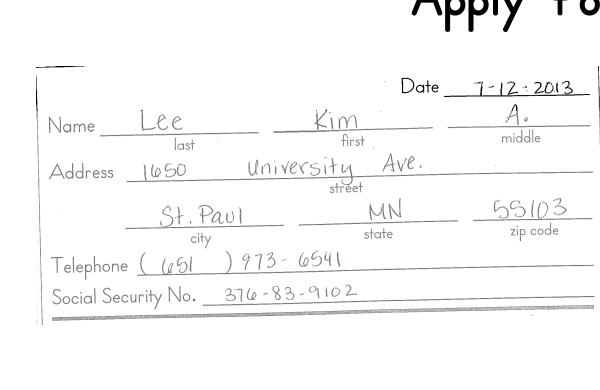 Apply Fo
Date 7-12-2013
Name Lee Kim A.
last first middle
Address 1650 University Ave.
street
St. Paul MN 55103
city state zip code
Telephone (651) 973-6541
Social Security No. 376-83-9102